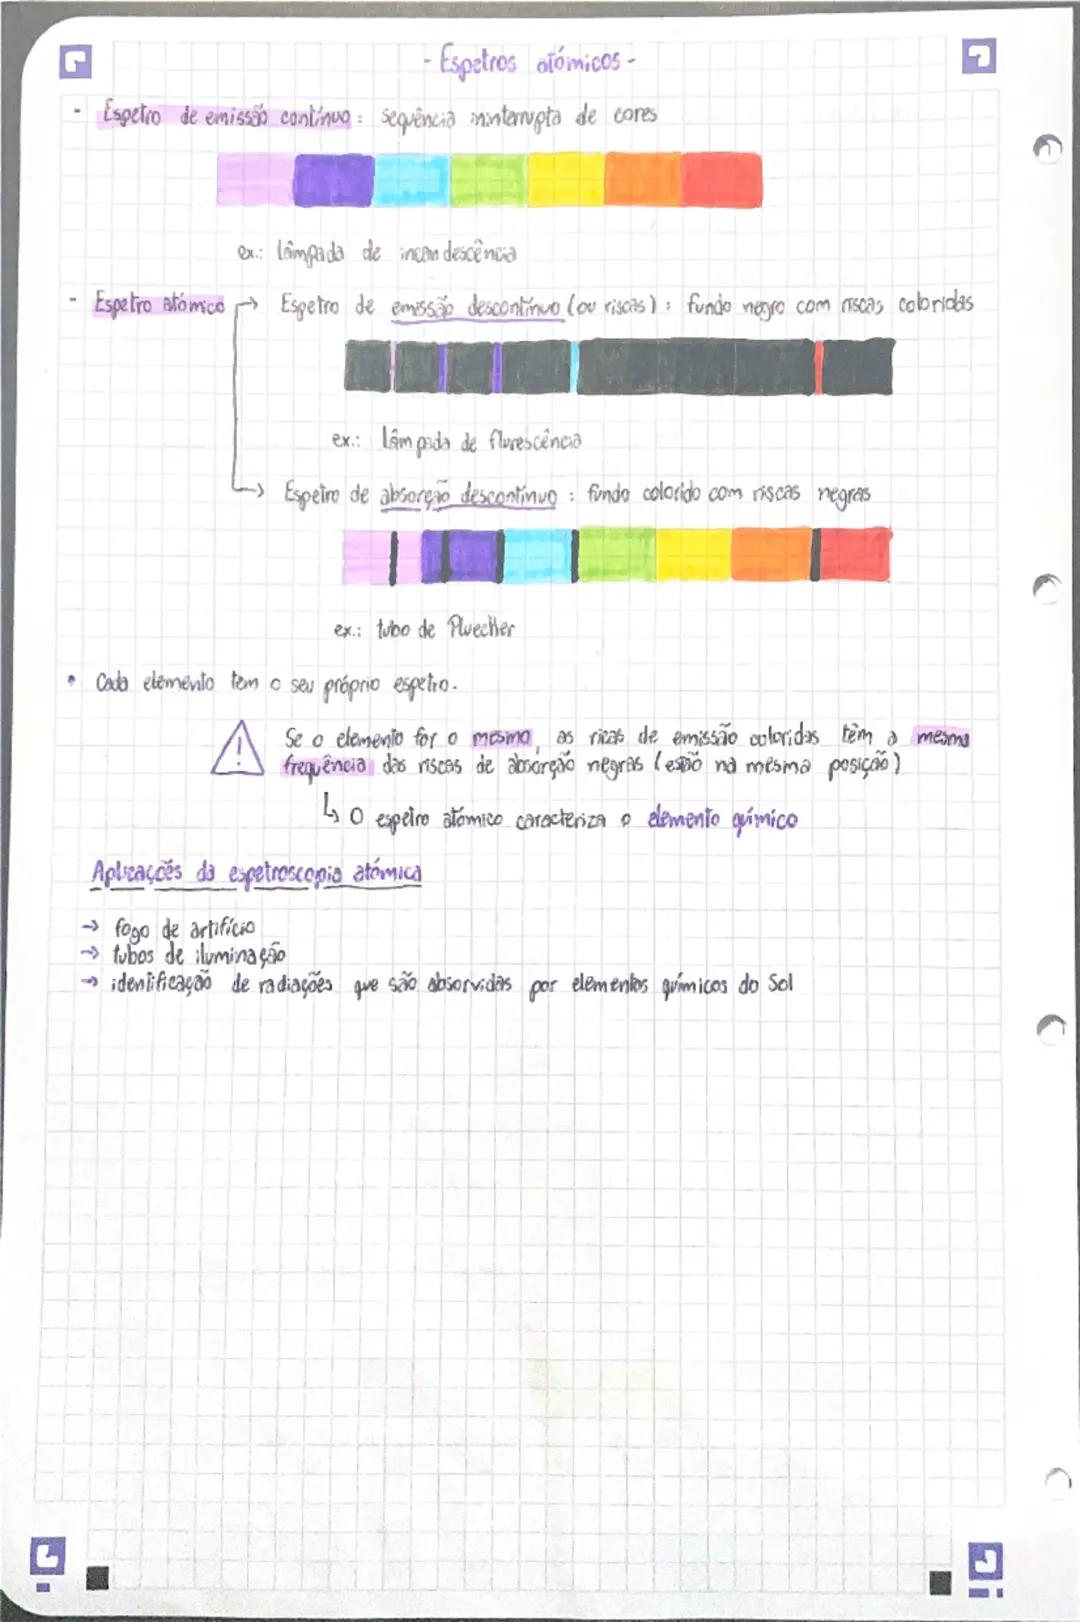 - Espetros atómicos -
- Espetro de emissão contínuo : sequência ininterrupta de cores
ex.: lâmpada de incandescência
- Espetro atómico → Espetro de emissão descontínuo (ou riscas) : fundo negro com riscas coloridas
ex.: lâmpada de flurescência
→ Espetro de absorção descontínuo : fundo colorido com riscas negras
ex.: tubo de Pluecker
• Cada elemento tem o seu próprio espetro.
! Se o elemento for o mesmo, as ricas de emissão coloridas têm a mesma
frequência das riscas de absorção negras (estão na mesma posição)
↳ O espetro atómico caracteriza o elemento químico
Aplicações da espetroscopia atómica
→ fogo de artifício
→ tubos de iluminação
→ identificação de radiações que são absorvidas por elementos químicos do Sol